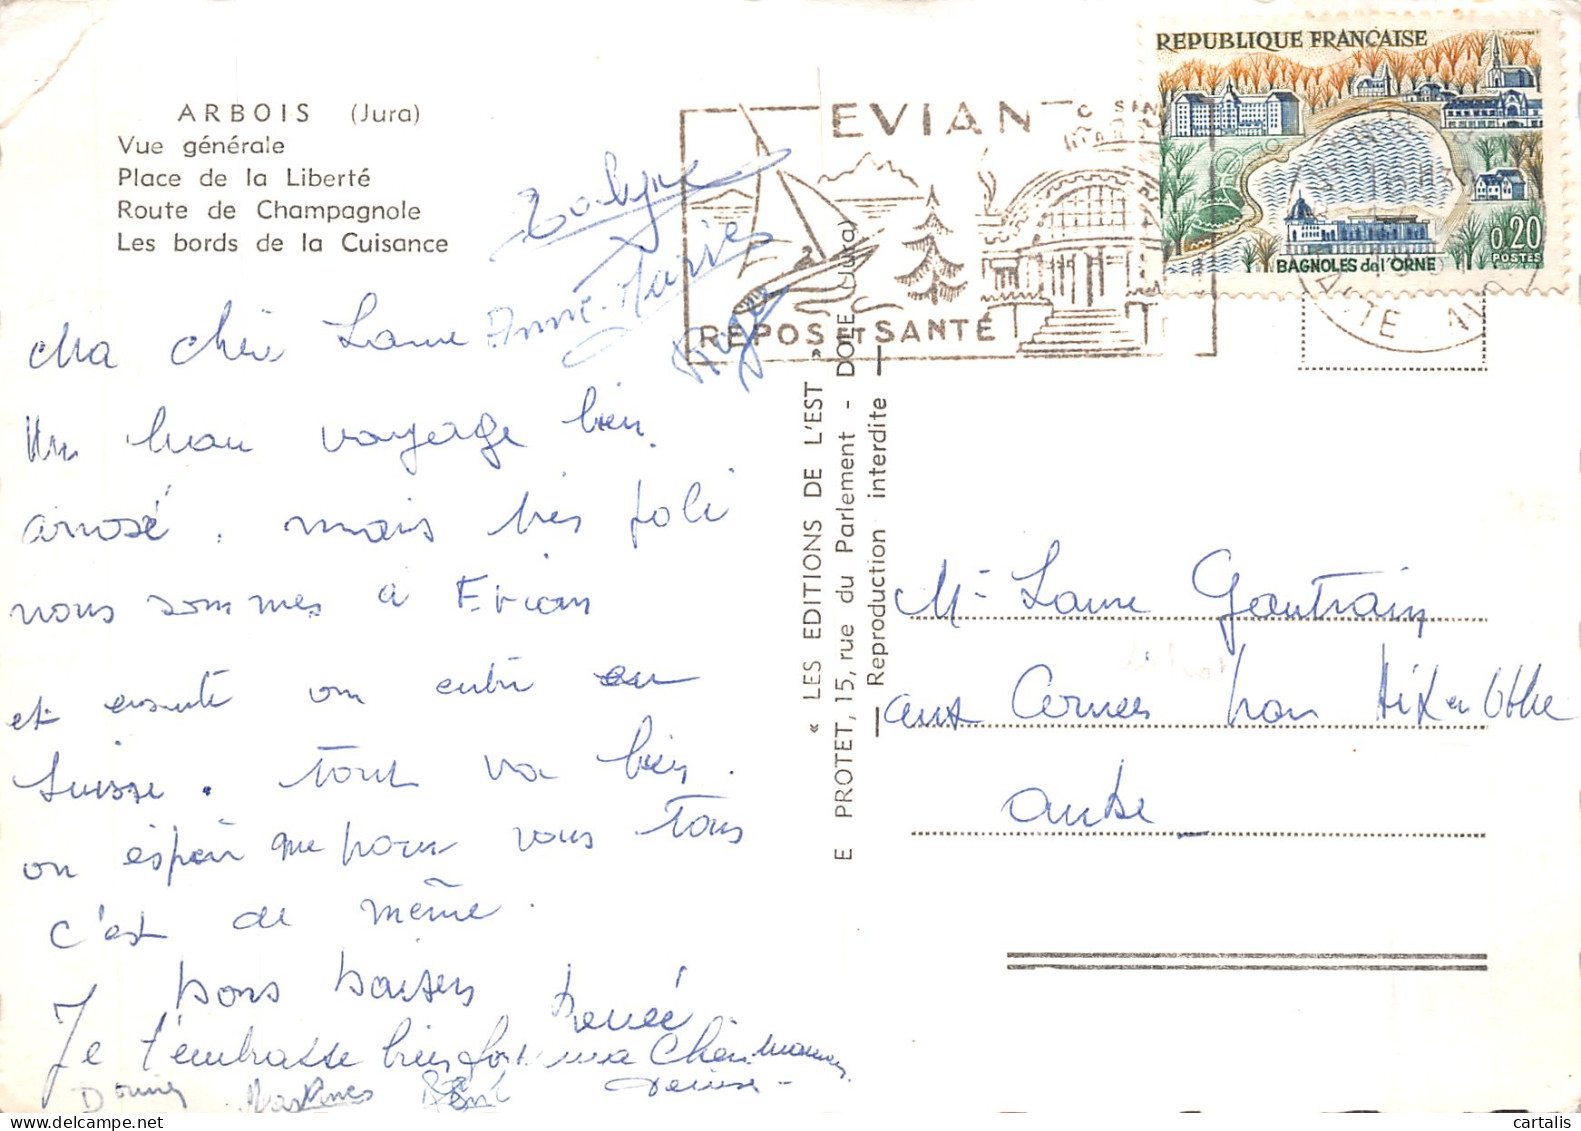 ARBOIS (Jura)
Vue générale
Place de la Liberté
Route de Champagnole
Les bords de la Cuisance
Ma chère Laure
Un beau voyage bien
arrosé, mais très joli
nous sommes à Evian
et ensuite on entre en
Suisse. tout va bien.
on espère que pour vous tous
c'est de même.
bons baisers Renée
Je t'embrasse bien fort ma Chère maman
Denise
Anne-Marie
« LES EDITIONS DE L'EST »
E PROTET, 15, rue du Parlement - DOLE (Jura)
Reproduction interdite
EVIAN
REPOS ET SANTÉ
REPUBLIQUE FRANÇAISE
0,20
POSTES
BAGNOLES de l'ORNE
Me Laure Gautrain
aux Cornées Aix en Othe
aube
cartalis